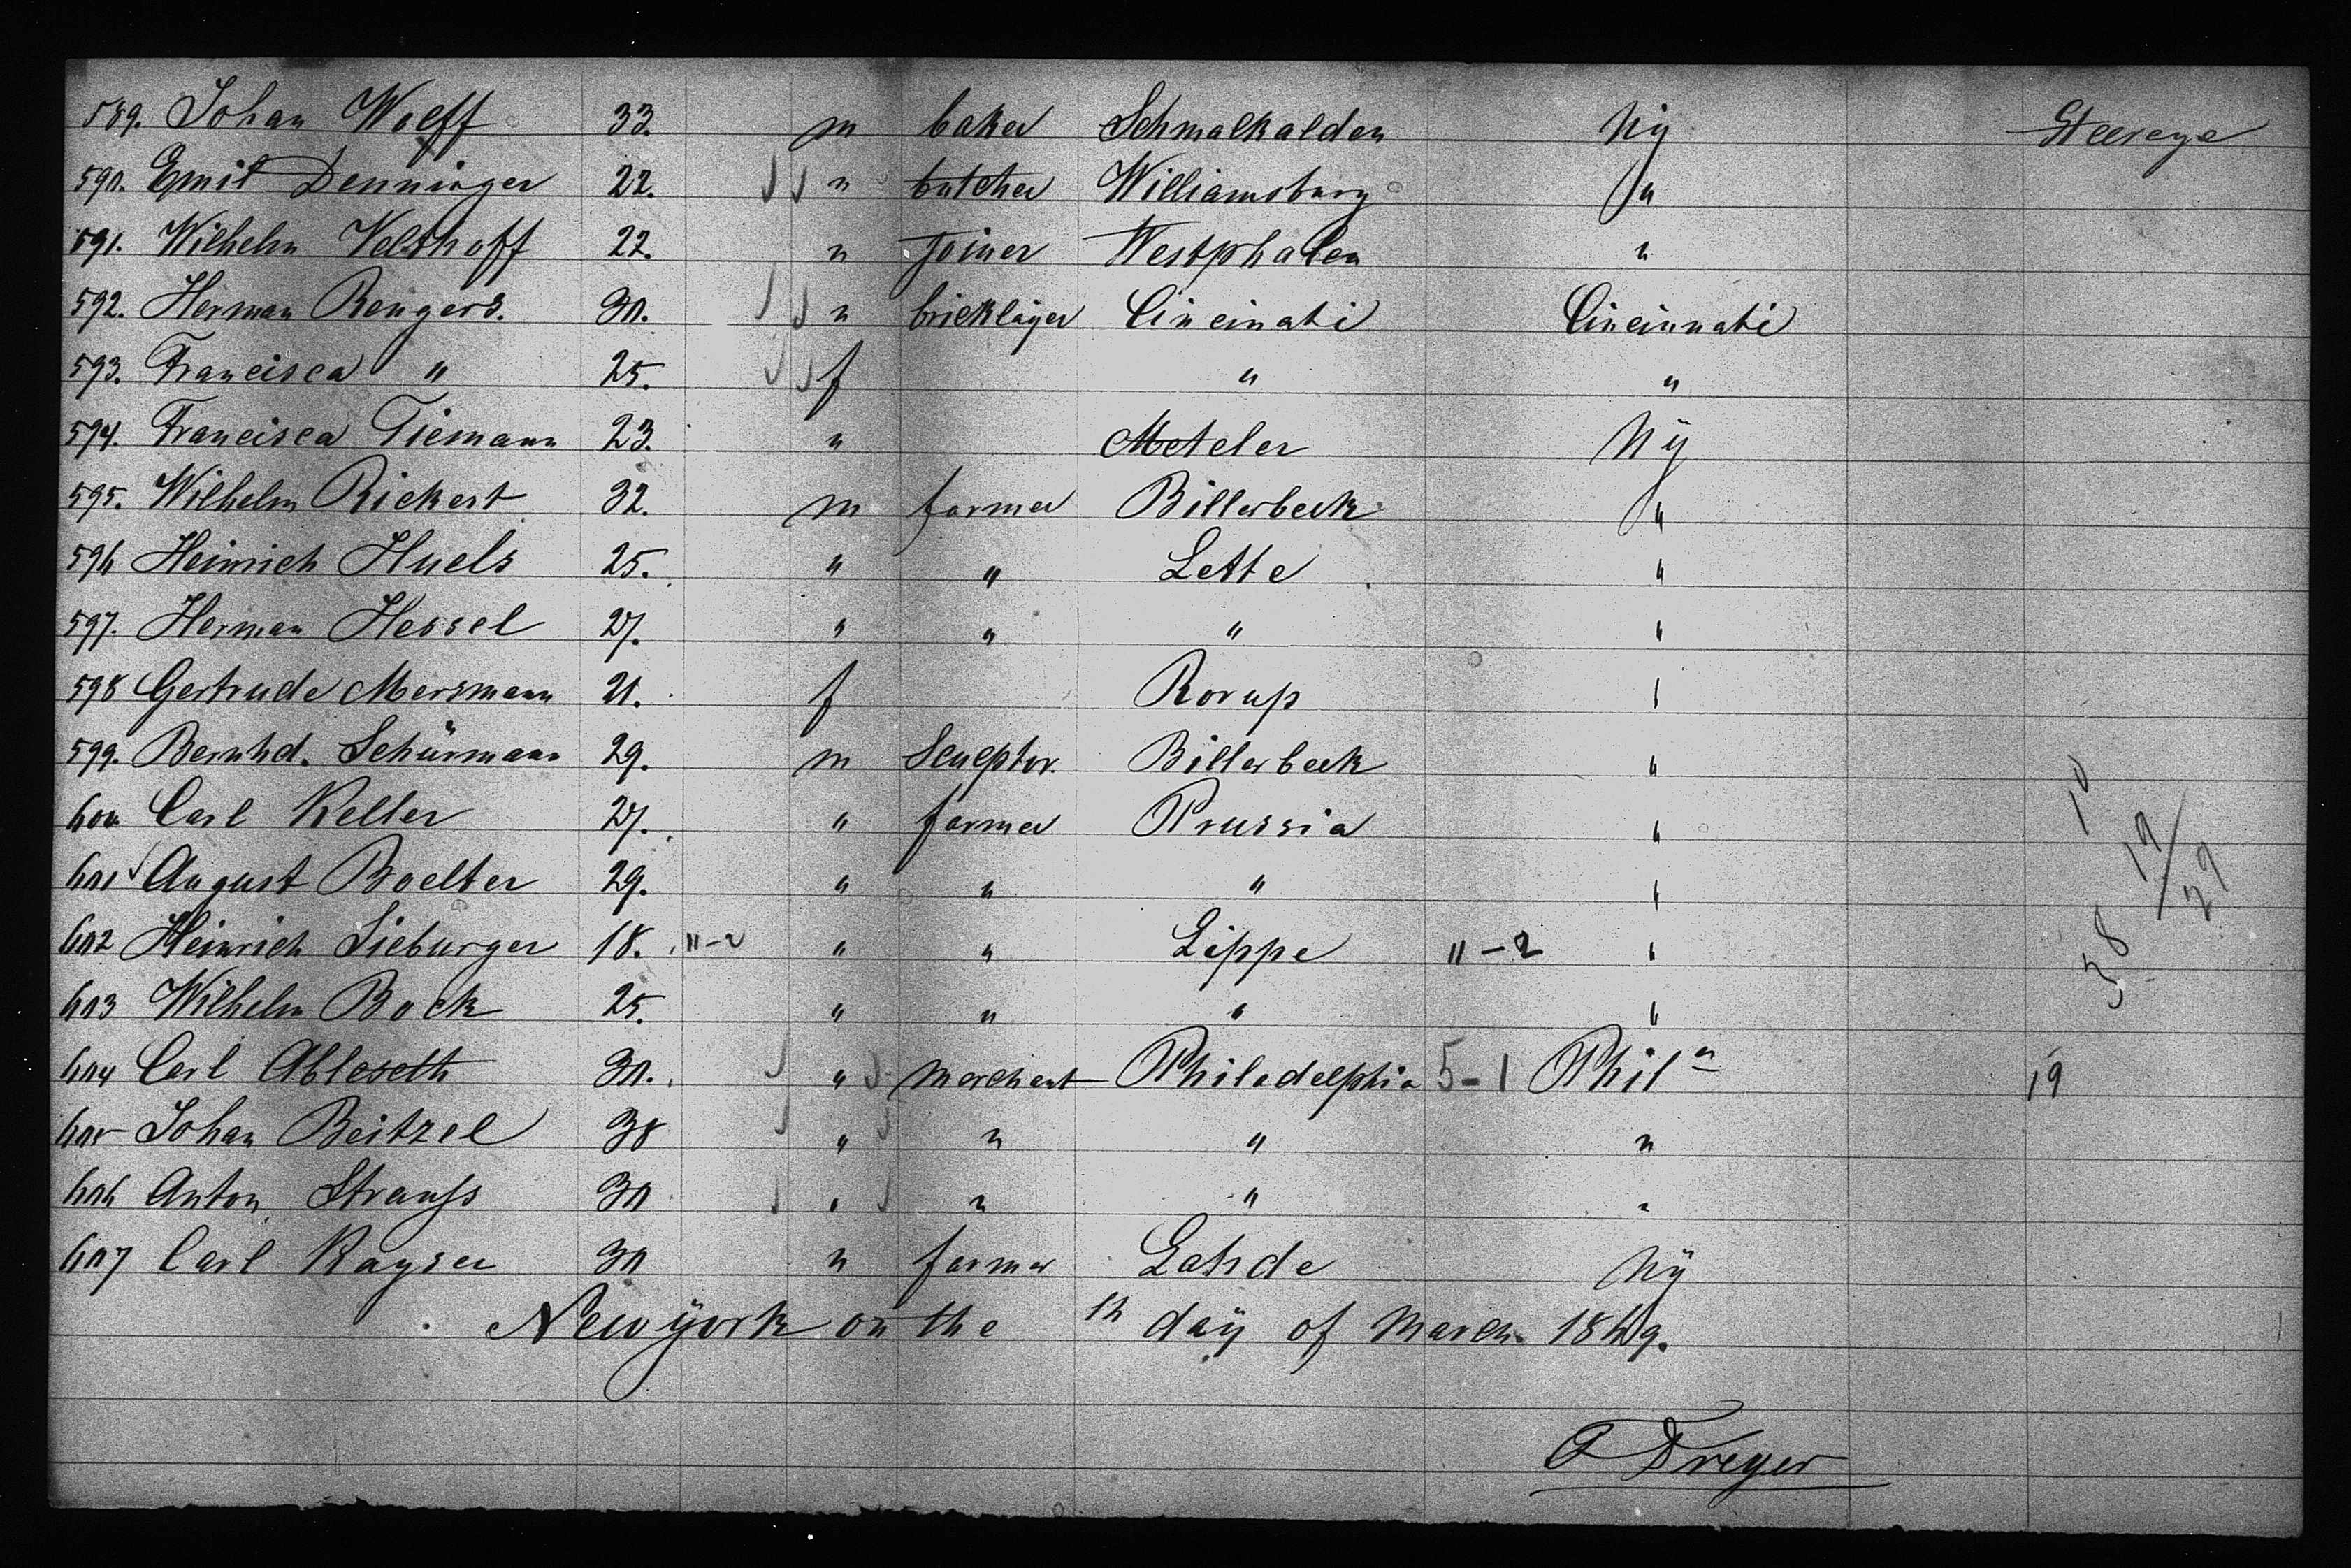 589. Johan Wolff 33. m baker Schmalkalden Ny Steerage
590. Emil Denninger 22. " butcher Williamsburg "
591. Wilhelm Velthoff 22. " Joiner Westphalen "
592. Herman Rengers. 30. " bricklayer Cincinati Cincinnati
593. Francisca " 25. f " "
594. Francisca Tiemann 23. " Meteler Ny
595. Wilhelm Rickert 32. m farmer Billerbeck "
596 Heinrich Huels 25. " " Lette "
597. Herman Hessel 27. " " " "
598 Gertrude Mersmann 21. f Rorup "
599. Bernhd. Schürmann 29. m Sculptor. Billerbeck "
600 Carl Keller 27. " farmer Prussia "
601 August Boelter 29. " " " "
602 Heinrich Sieburger 18. 11-2 " " Lippe 11-2 "
603 Wilhelm Bock 25. " " " "
604 Carl 30. " Merchant Philadelphia 5-1 Phila 19
605 Johan Beitzel 38 " " " "
606 Anton Strauss 30 " " " "
607 Carl Kayser 30 " farmer Lahde Ny
10
19/29
58
New york on the th day of March 1869.
Dreyer